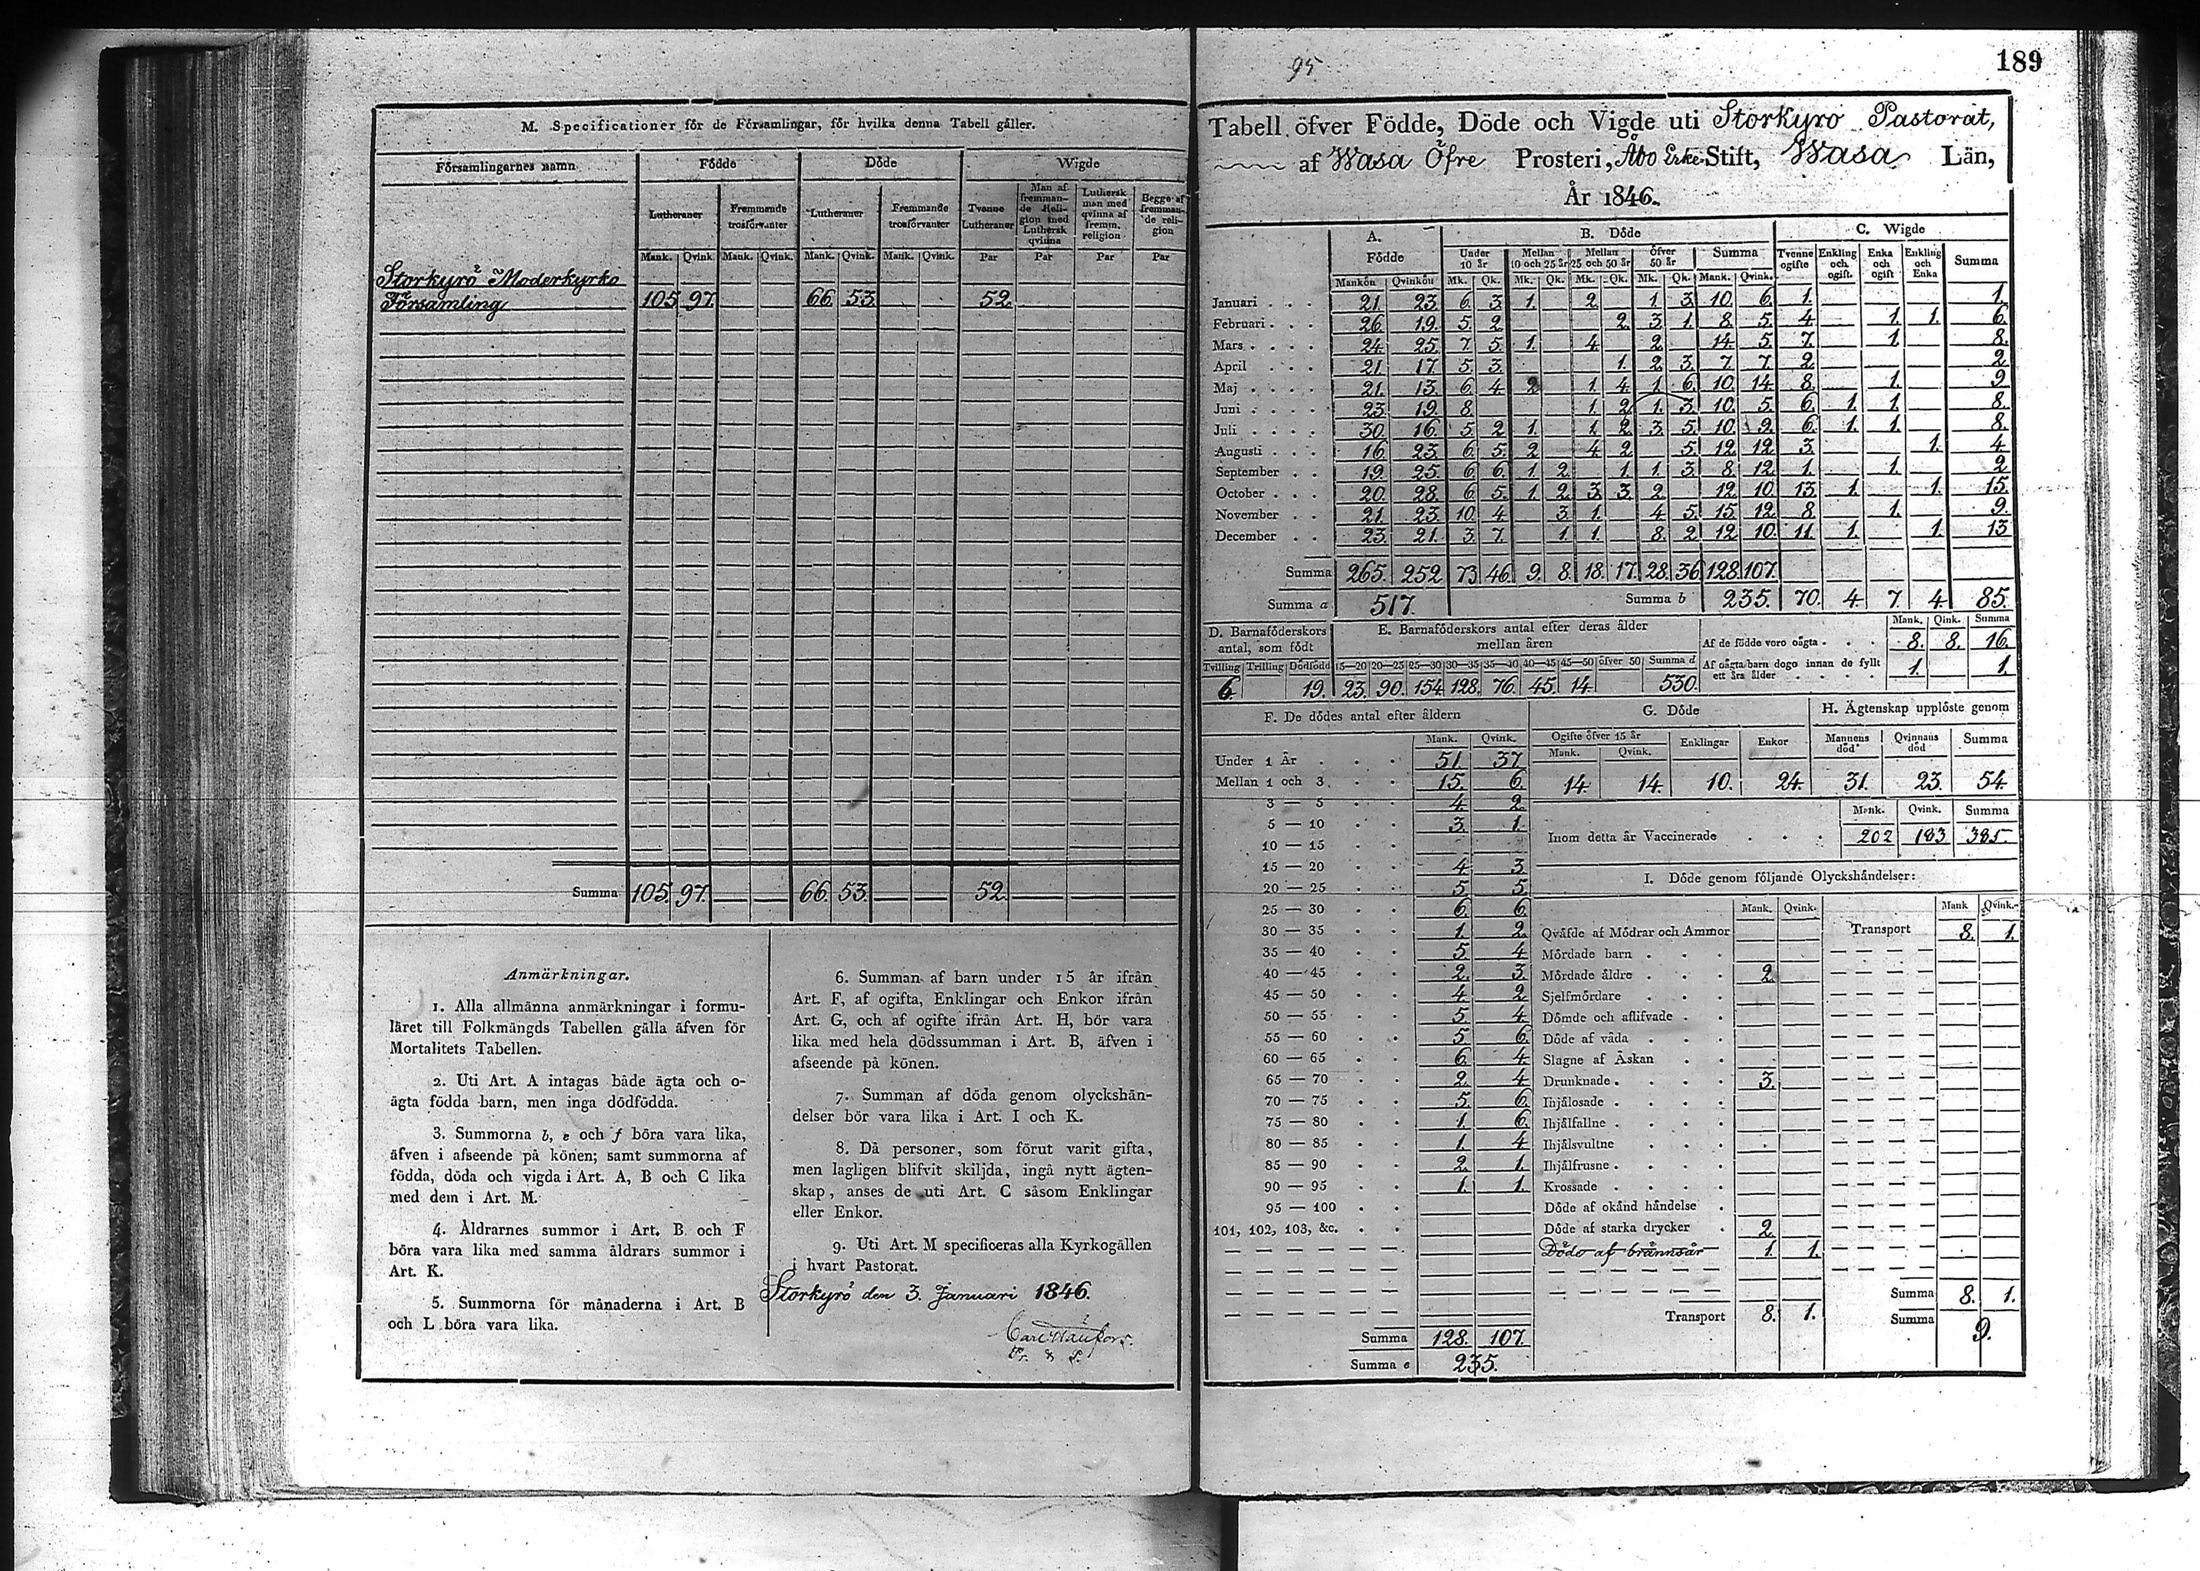 M. Specificationer för de Församlingar, för hvilka denna Tabell gäller.
Församlingarnes namn Födde Döde Wigde
Lutheraner Fremmande trosförvanter Lutheraner Fremmande trosförvanter Tvenne Lutheraner Man af fremmande Religion med Luthersk qvinna Luthersk man med qvinna af fremm. religion Begge af fremmande religion
Mank. Qvink. Mank. Qvink. Mank. Qvink. Mank. Qvink. Par Par Par Par
Storkyrö Moderkyrko
Församling 105. 97. 66. 53. 52.
Summa 105. 97. 66. 53. 52.
Anmärkningar.
1. Alla allmänna anmärkningar i formu-
läret till Folkmängds Tabellen gälla äfven för
Mortalitets Tabellen.
2. Uti Art. A intagas både ägta och o-
ägta födda barn, men inga dödfödda.
3. Summorna b, e och f böra vara lika,
äfven i afseende på könen; samt summorna af
födda, döda och vigda i Art. A, B och C lika
med dem i Art. M.
4. Åldrarnes summor i Art. B och F
böra vara lika med samma åldrars summor i
Art. K.
5. Summorna för månaderna i Art. B
och L böra vara lika.
6. Summan af barn under 15 år ifrån
Art. F, af ogifta, Enklingar och Enkor ifrån
Art. G, och af ogifte ifrån Art. H, bör vara
lika med hela dödssumman i Art. B, äfven i
afseende på könen.
7. Summan af döda genom olyckshän-
delser bör vara lika i Art. I och K.
8. Då personer, som förut varit gifta,
men lagligen blifvit skiljda, ingå nytt ägten-
skap, anses de uti Art. C såsom Enklingar
eller Enkor.
9. Uti Art. M specificeras alla Kyrkogällen
i hvart Pastorat.
Storkyrö den 3. Januari 1846.
95
189
Tabell öfver Födde, Döde och Vigde uti Storkyro Pastorat,
af Wasa Öfre Prosteri, Åbo Erke Stift, Wasa Län,
År 1846.
A. Födde B. Döde C. Wigde
Under 10 år Mellan 10 och 25 år Mellan 25 och 50 år Öfver 50 år Summa Tvenne ogifte Enkling och ogift. Enka och ogift Enkling och Enka Summa
Mankön Qvinkön Mk. Qk. Mk. Qk. Mk. Qk. Mk. Qk. Mank. Qvink.
Januari 21. 23. 6. 3. 1. 2. 1. 3. 10. 6. 1. 1.
Februari 26. 19. 5. 2. 2. 3. 1. 8. 5. 4. 1. 1. 6.
Mars 24. 25. 7. 5. 1. 4. 2. 14. 5. 7. 1. 8.
April 21. 17. 5. 3. 1. 2. 3. 7. 7. 2. 2.
Maj 21. 13. 6. 4. 2. 1. 4. 1. 6. 10. 14. 8. 1. 9.
Juni 23. 19. 8. 1. 2. 1. 3. 10. 5. 6. 1. 1. 8.
Juli 30. 16. 5. 2. 1. 1. 2. 3. 5. 10. 2. 6. 1. 1. 8.
Augusti 16. 23. 6. 5. 2. 4. 2. 5. 12. 12. 3. 1. 4.
September 19. 25. 6. 6. 1. 2. 1. 1. 3. 8. 12. 1. 1. 2.
October 20. 28. 6. 5. 1. 2. 3. 3. 2. 12. 10. 13. 1. 1. 15.
November 21. 23. 10. 4. 3. 1. 4. 5. 15. 12. 8. 1. 9.
December 23. 21. 3. 7. 1. 1. 8. 2. 12. 10. 11. 1. 1. 13
Summa 265. 252 73 46. 9. 8. 18. 17. 28. 36 128. 107.
Summa a 517. Summa b 235. 70. 4. 7. 4. 85.
D. Barnaföderskors antal, som födt
Tvilling Trilling Dödfödd
6. 19.
E. Barnaföderskors antal efter deras ålder mellan åren
15—20 20—25 25—30 30—35 35—40 40—45 45—50 öfver 50 Summa d
23. 90. 154. 128. 76. 45. 14. 530.
Mank. Qink. Summa
Af de födde voro oägta 8. 8. 16.
Af oägta barn dogo innan de fyllt ett års ålder 1. 1.
F. De dödes antal efter åldern
Mank. Qvink.
Under 1 År 51. 37.
Mellan 1 och 3 15. 6.
3 — 5 4. 2.
5 — 10 3. 1.
10 — 15
15 — 20 4. 3.
20 — 25 5. 5.
25 — 30 6. 6.
30 — 35 1. 2.
35 — 40 5. 4.
40 — 45 2. 3.
45 — 50 4. 2.
50 — 55 5. 4.
55 — 60 5. 6.
60 — 65 6. 4.
65 — 70 2. 4.
70 — 75 5. 6.
75 — 80 1. 6.
80 — 85 1. 4.
85 — 90 2. 1.
90 — 95 1. 1.
95 — 100
101, 102, 103, &c.
Summa 128. 107.
Summa e 235.
G. Döde
Ogifte öfver 15 år Enklingar Enkor
Mank. Qvink.
14. 14. 10. 24.
H. Ägtenskap upplöste genom
Mannens död Qvinnans död Summa
31. 23. 54.
Mank. Qvink. Summa
Inom detta år Vaccinerade 202 183 385.
I. Döde genom följande Olyckshändelser:
Mank. Qvink. Mank Qvink.
Qväfde af Mödrar och Ammor Transport 8. 1.
Mördade barn
Mördade äldre 2.
Sjelfmördare
Dömde och aflifvade
Döde af våda
Slagne af Åskan
Drunknade 3.
Ihjälosade
Ihjälfallne
Ihjälsvultne
Ihjälfrusne
Krossade
Döde af okänd händelse
Döde af starka drycker 2.
Döde af brännsår 1. 1.
Summa 8. 1.
Transport 8. 1.
Summa 9.